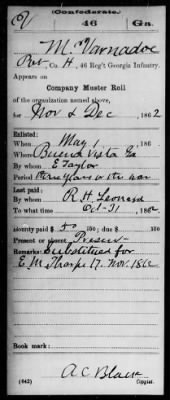 Confederate.
V 46 Ga.
M. Varnadoe
Pvt Co. H, 46 Reg't Georgia Infantry.
Appears on
Company Muster Roll
of the organization named above,
for Nov & Dec, 1862
Enlisted:
When May 1, 186
Where Buena Vista Ga
By whom E Taylor
Period three years or the war
Last paid:
By whom R. H. Leonard
To what time Oct 31, 1862
Bounty paid $ 50 100; due $ 100
Present or absent Present
Remarks: Substituted for
E. M. Tharpe 17. Nov. 1862
Book mark:
A C Black
(642) Copyist.